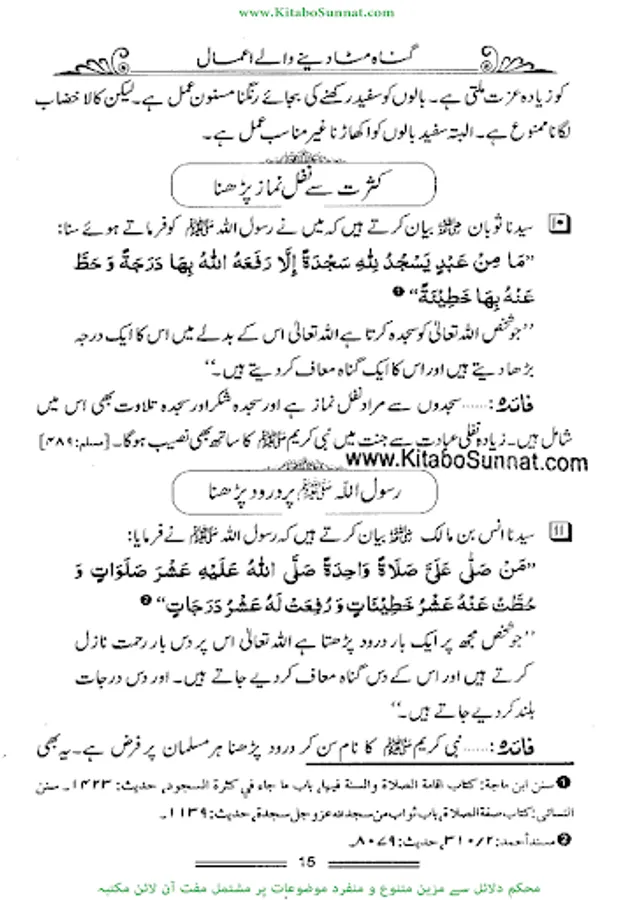 www.KitaboSunnat.com
گناہ مٹا دینے والے اعمال
کو زیادہ عزت ملتی ہے۔ بالوں کو سفید رکھنے کی بجائے رنگنا مسنون عمل ہے۔ لیکن کالا خضاب
لگانا ممنوع ہے۔ البتہ سفید بالوں کو اکھاڑنا غیر مناسب عمل ہے۔
کثرت سے نفل نماز پڑھنا
۱۰ سیدنا ثوبان ﷜ بیان کرتے ہیں کہ میں نے رسول اللہ ﷺ کو فرماتے ہوئے سنا:
”مَا مِنْ عَبْدٍ يَسْجُدُ لِلَّهِ سَجْدَةً إِلَّا رَفَعَهُ اللَّهُ بِهَا دَرَجَةً وَ حَطَّ
عَنْهُ بِهَا خَطِيْئَةً“ ❶
’’جو شخص اللہ تعالیٰ کو سجدہ کرتا ہے اللہ تعالیٰ اس کے بدلے میں اس کا ایک درجہ
بڑھا دیتے ہیں اور اس کا ایک گناہ معاف کر دیتے ہیں۔‘‘
فائدہ:...... سجدوں سے مراد نفل نماز ہے اور سجدہ شکر اور سجدہ تلاوت بھی اس میں
شامل ہیں۔ زیادہ نفلی عبادت سے جنت میں نبی کریم ﷺ کا ساتھ بھی نصیب ہوگا۔ [مسلم: ۴۸۹]
www.KitaboSunnat.com
رسول اللہ ﷺ پر درود پڑھنا
۱۱ سیدنا انس بن مالک ﷜ بیان کرتے ہیں کہ رسول اللہ ﷺ نے فرمایا:
”مَنْ صَلَّى عَلَيَّ صَلَاةً وَاحِدَةً صَلَّى اللَّهُ عَلَيْهِ عَشْرَ صَلَوَاتٍ وَ
حُطَّتْ عَنْهُ عَشْرُ خَطِيْئَاتٍ وَ رُفِعَتْ لَهُ عَشْرُ دَرَجَاتٍ“ ❷
’’جو شخص مجھ پر ایک بار درود پڑھتا ہے اللہ تعالیٰ اس پر دس بار رحمت نازل
کرتے ہیں اور اس کے دس گناہ معاف کر دیے جاتے ہیں۔ اور دس درجات
بلند کر دیے جاتے ہیں۔‘‘
فائدہ:...... نبی کریم ﷺ کا نام سن کر درود پڑھنا ہر مسلمان پر فرض ہے۔ یہ بھی
❶ سنن ابن ماجة: كتاب اقامة الصلاة والسنة فيها، باب ما جاء في كثرة السجود، حديث: ۱۴۲۳۔ سنن
النسائى: كتاب صفة الصلاة، باب ثواب من سجد لله عزوجل سجدة، حديث: ۱۱۳۹۔
❷ مسند أحمد: ۳۱۰/۲، حديث: ۸۰۷۹۔
15
محکم دلائل سے مزین متنوع و منفرد موضوعات پر مشتمل مفت آن لائن مکتبہ